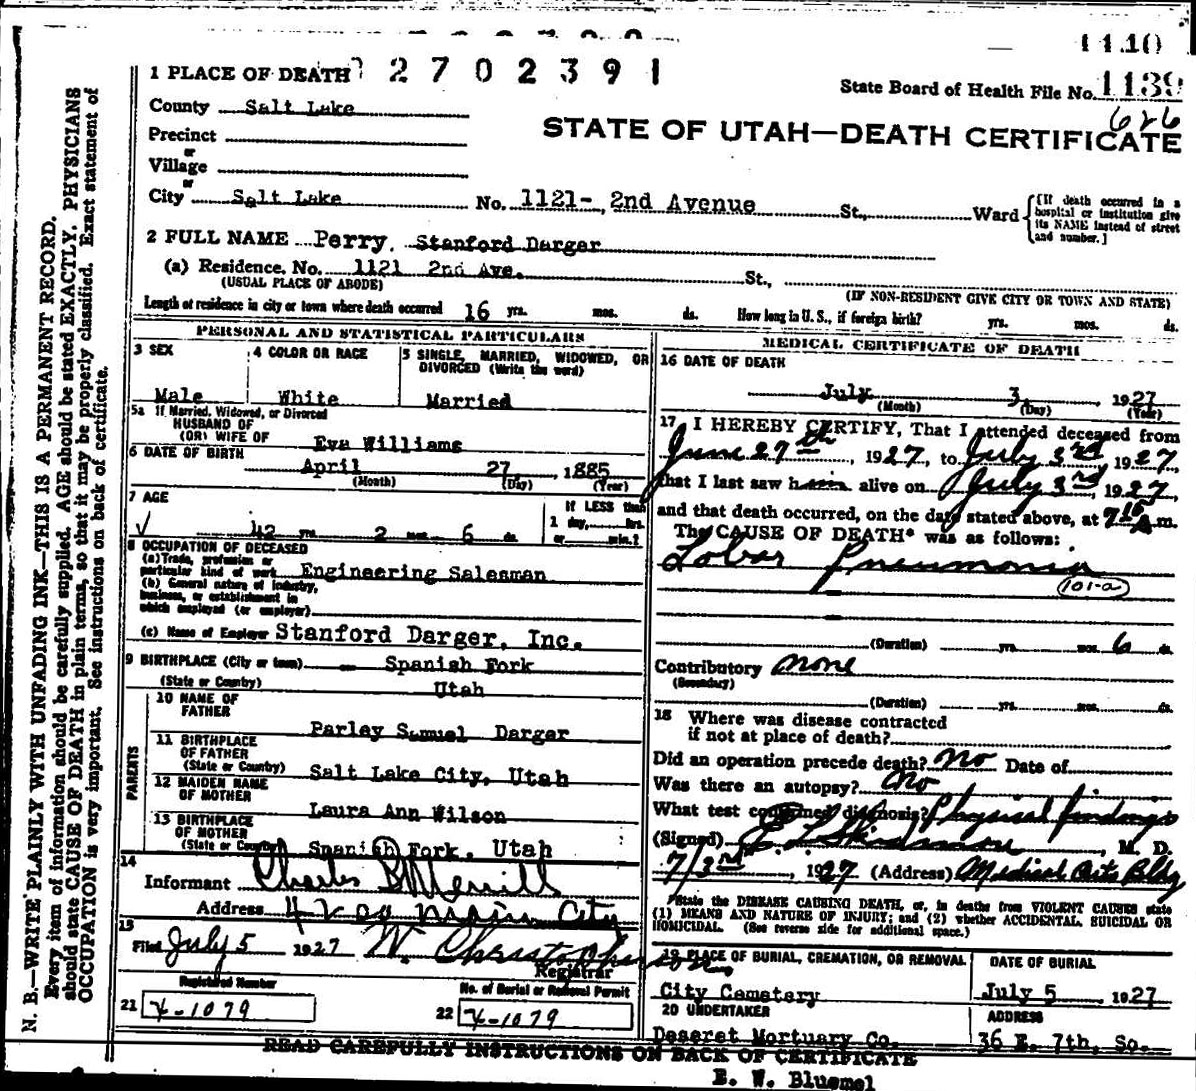 1110
2702391
State Board of Health File No. 1139
626
STATE OF UTAH—DEATH CERTIFICATE
1 PLACE OF DEATH
County Salt Lake
Precinct
or
Village
or
City Salt Lake No. 1121- 2nd Avenue St., Ward
{If death occurred in a hospital or institution give its NAME instead of street and number.}
2 FULL NAME Perry, Stanford Darger
(a) Residence, No. 1121 2nd Ave. St.,
(USUAL PLACE OF ABODE) (IF NON-RESIDENT GIVE CITY OR TOWN AND STATE)
Length of residence in city or town where death occurred 16 yrs. mos. ds. How long in U. S., if foreign birth? yrs. mos. ds.
PERSONAL AND STATISTICAL PARTICULARS
3 SEX
Male
4 COLOR OR RACE
White
5 SINGLE, MARRIED, WIDOWED, OR
DIVORCED (Write the word)
Married
5a If Married, Widowed, or Divorced
HUSBAND OF
(OR) WIFE OF Eva Williams
6 DATE OF BIRTH
April 27, 1885
(Month) (Day) (Year)
7 AGE
42 yrs. 2 mos. 6 ds.
If LESS than
1 day, hrs.
or min.?
8 OCCUPATION OF DECEASED
(a) Trade, profession or
particular kind of work Engineering Salesman
(b) General nature of industry,
business, or establishment in
which employed (or employer)
(c) Name of Employer Stanford Darger, Inc.
9 BIRTHPLACE (City or town) Spanish Fork
(State or Country) Utah
PARENTS
10 NAME OF
FATHER Parley Samuel Darger
11 BIRTHPLACE
OF FATHER
(State or Country) Salt Lake City, Utah
12 MAIDEN NAME
OF MOTHER Laura Ann Wilson
13 BIRTHPLACE
OF MOTHER
(State or Country) Spanish Fork, Utah
14
Informant Charles B Merrill
Address 42 So Main City
15
Filed July 5 1927 W. Christopherson
Registrar
Registered Number
21 X-1079
No. of Burial or Removal Permit
22 X-1079
MEDICAL CERTIFICATE OF DEATH
16 DATE OF DEATH
July 3, 1927
(Month) (Day) (Year)
17 I HEREBY CERTIFY, That I attended deceased from
June 27th, 1927, to July 3rd 1927,
that I last saw him alive on July 3rd, 1927,
and that death occurred, on the date stated above, at 7 15 A.m.
The CAUSE OF DEATH* was as follows:
Lobar Pneumonia
101-a
(Duration) yrs. mos. 6 ds.
Contributory None
(Secondary)
(Duration) yrs. mos. ds.
18 Where was disease contracted
if not at place of death?
Did an operation precede death? No Date of
Was there an autopsy? No
What test confirmed diagnosis? Physical findings
(Signed) M. D.
7/3rd, 1927 (Address) Medical Arts Bldg
*State the DISEASE CAUSING DEATH, or, in deaths from VIOLENT CAUSES state
(1) MEANS AND NATURE OF INJURY; and (2) whether ACCIDENTAL, SUICIDAL OR
HOMICIDAL. (See reverse side for additional space.)
19 PLACE OF BURIAL, CREMATION, OR REMOVAL
City Cemetery
DATE OF BURIAL
July 5, 1927
20 UNDERTAKER
Deseret Mortuary Co.
ADDRESS
36 E. 7th, So.
READ CAREFULLY INSTRUCTIONS ON BACK OF CERTIFICATE
E. W. Bluemel
N. B.—WRITE PLAINLY WITH UNFADING INK—THIS IS A PERMANENT RECORD.
Every item of information should be carefully supplied. AGE should be stated EXACTLY. PHYSICIANS
should state CAUSE OF DEATH in plain terms, so that it may be properly classified. Exact statement of
OCCUPATION is very important. See instructions on back of certificate.